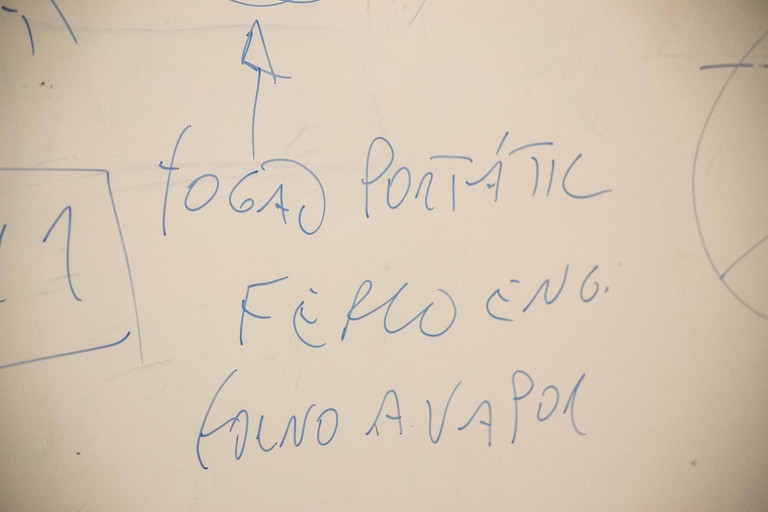 11
FOGÃO PORTÁTIL
FERRO ENG.
FORNO A VAPOR